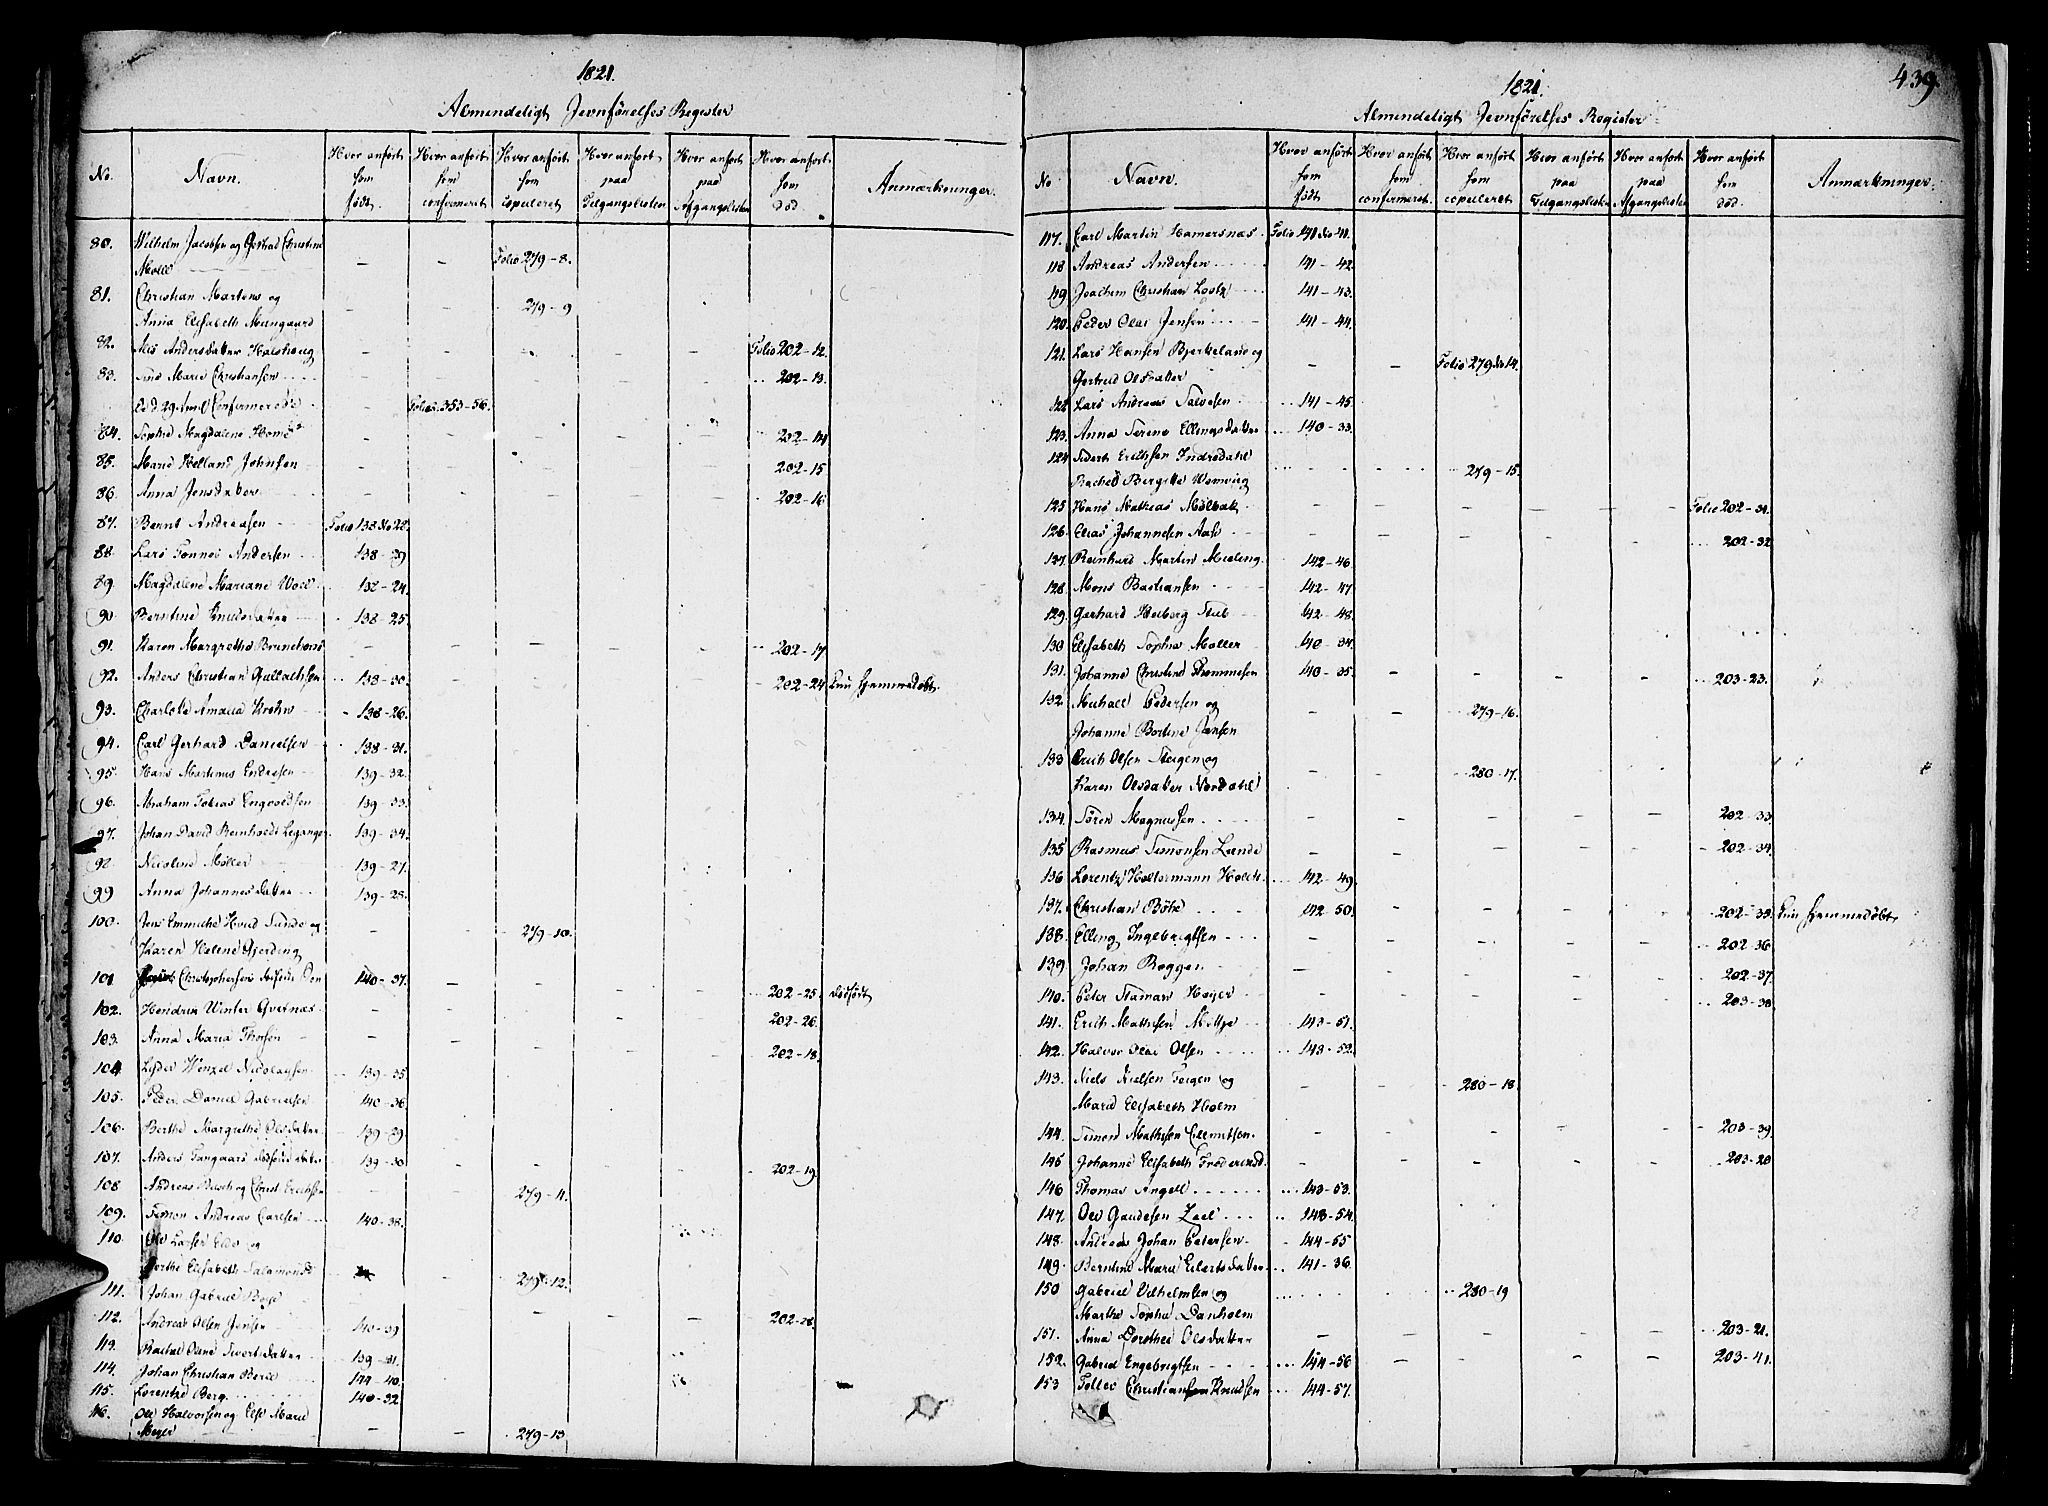 1821.
Almindeligt Jevnförelses Register
No.
Navn.
Hvor anfört som födt.
Hvor anfört som confirmeret
Hvor anfört som copuleret
Hvor anfört paa Tilgangslisten
Hvor anfört paa Afgangslisten
Hvor anfört som död.
Anmærkninger.
80. Wilhelm Jacobsen og Christine
Moll — — Folio 279-8.
81. Christian Martens og
Anna Elisabeth Mungaard — — 279-9
82. Andersdatter — — — — — Folio 202-12.
83. Marie Christiansen 202-13.
d. 29 April Confirmerede — Folio 353-56.
84. Sophie Magdalene 202-14
85. Marie Helland Johnsen 202-15
86. Anna Jensdatter 202-16
87. Bernt Andreasen Folio 138 No 22.
88. Lars Tönnes Andersen 138-
89. Magdalene Mariane Woll 138-24.
90. Berntine Knudsdatter 138-25.
91. Karen Margrethe 202-17
92. Anders Christian 138-30. 202-24 kun hjemmedöbt.
93. Charlotte Amalia Krohn 138-26.
94. Carl Gerhard Danielsen 138-31.
95. Hans Martinus Endresen 139-32.
96. Abraham Tobias Engvoldsen 139-33.
97. Johan David Reinholdt Leganger 139-34.
98. Nicoline Möller 139-27.
99 Anna Johannesdatter 139-28.
100. Jens Emmiche Hvid Sundt og
Karen Helene Gjerding — — 279-10.
101 Christophersens dödfödte Sön 140-37. 202-25. dödfödt
102. Hendrik Winter 202-26.
103. Anna Maria Thorsen 202-18.
104 Lyder Wenzel Nicolaysen 139-35
105. Peder Daniel Gabrielsen 140-36.
106. Berthe Margrethe Olsdatter 139-29.
107. Anders dödfödte datter 139-30 202-19.
108 Andreas Busch og Erichsen 279-11.
109. Simon Andreas Carlsen 140-38.
110. Ole Larsen og
Berthe Elisabeth Salamonsd. — 279-12.
111. Johan Gabriel
112. Andreas Olsen Jensen 140-39
113. Rachel Oline Sivertsdatter 139-31.
114. Johan Christian 144-40.
115. Lorentze Berg 140-32
116. Ole Halvorsen og Else Marie
Meyer — — 279-13
439.
1821.
Almindeligt Jevnförelses Register
No
Navn.
Hvor anfört som födt
Hvor anfört som confirmeret.
Hvor anfört som copuleret
Hvor anfört paa Tilgangslisten
Hvor anfört paa Afgangslisten
Hvor anfört som död.
Anmærkninger.
117. Carl Martin Hamersnæs Folio 141 No 41.
118 Andreas Andersen 141-42.
119 Joachim Christian 141-43.
120. Peder Olai Jensen 141-44.
121. Lars Hansen Bjerkeland og
Gertrud Olsdatter — — Folio 279 No 14.
122 Lars Andreas Salvesen 141-45.
123. Anna Serine Ellingsdatter 140-33.
124 Sivert Erichsen Indredahl
Rachel Bergitte 279-15.
125 Hans Mathias Molbak Folio 202-31.
126. Elias Johannesen Aase 202-32
127. Reinhard Martin Mieling 142-46
128. Mons Bastiansen 142-47
129. Gerhard Heiberg Stub 142-48.
130 Elisabeth Sophia Möller 140-34.
131. Johanne Christine Thommesen 140-35 203-23.
132. Michael Pedersen og
Johanne Bortine Jansen — — 279-16.
133 Erich Olsen Steigen og
Karen Olsdatter Nordahl — — 280-17.
134. Sören Magnussen 202-33
135 Rasmus Simonsen Lænde 202-34.
136 Lorentz Holtermann 142-49.
137. Christian Böhe 142-50. 202-35 kun hjemmedöbt
138. Elling Ingebrigtsen 202-36
139 Johan Bögger 202-37.
140. Peter 203-38
141. Erich Mathisen 143-51.
142. Halvor Olai Olsen 143-52.
143. Niels Nielsen og
Marie Elisabeth Holm — — 280-18
144. Simon Mathisen 203-39
145 Johanne Elisabeth 203-20
146 Thomas Angell 143-53.
147. Ole Gaudesen 143-54.
148. Andreas Johan Petersen 144-55
149. Berntine Marie Eilertsdatter 141-36.
150 Gabriel Vilhelmsen og
Marthe Sophie Danholm 280-19
151. Anna Dorothea Olsdatter 203-21.
152. Gabriel Engebrigtsen 144-56 203-41.
153 Christiansen Knudsen 144-57.